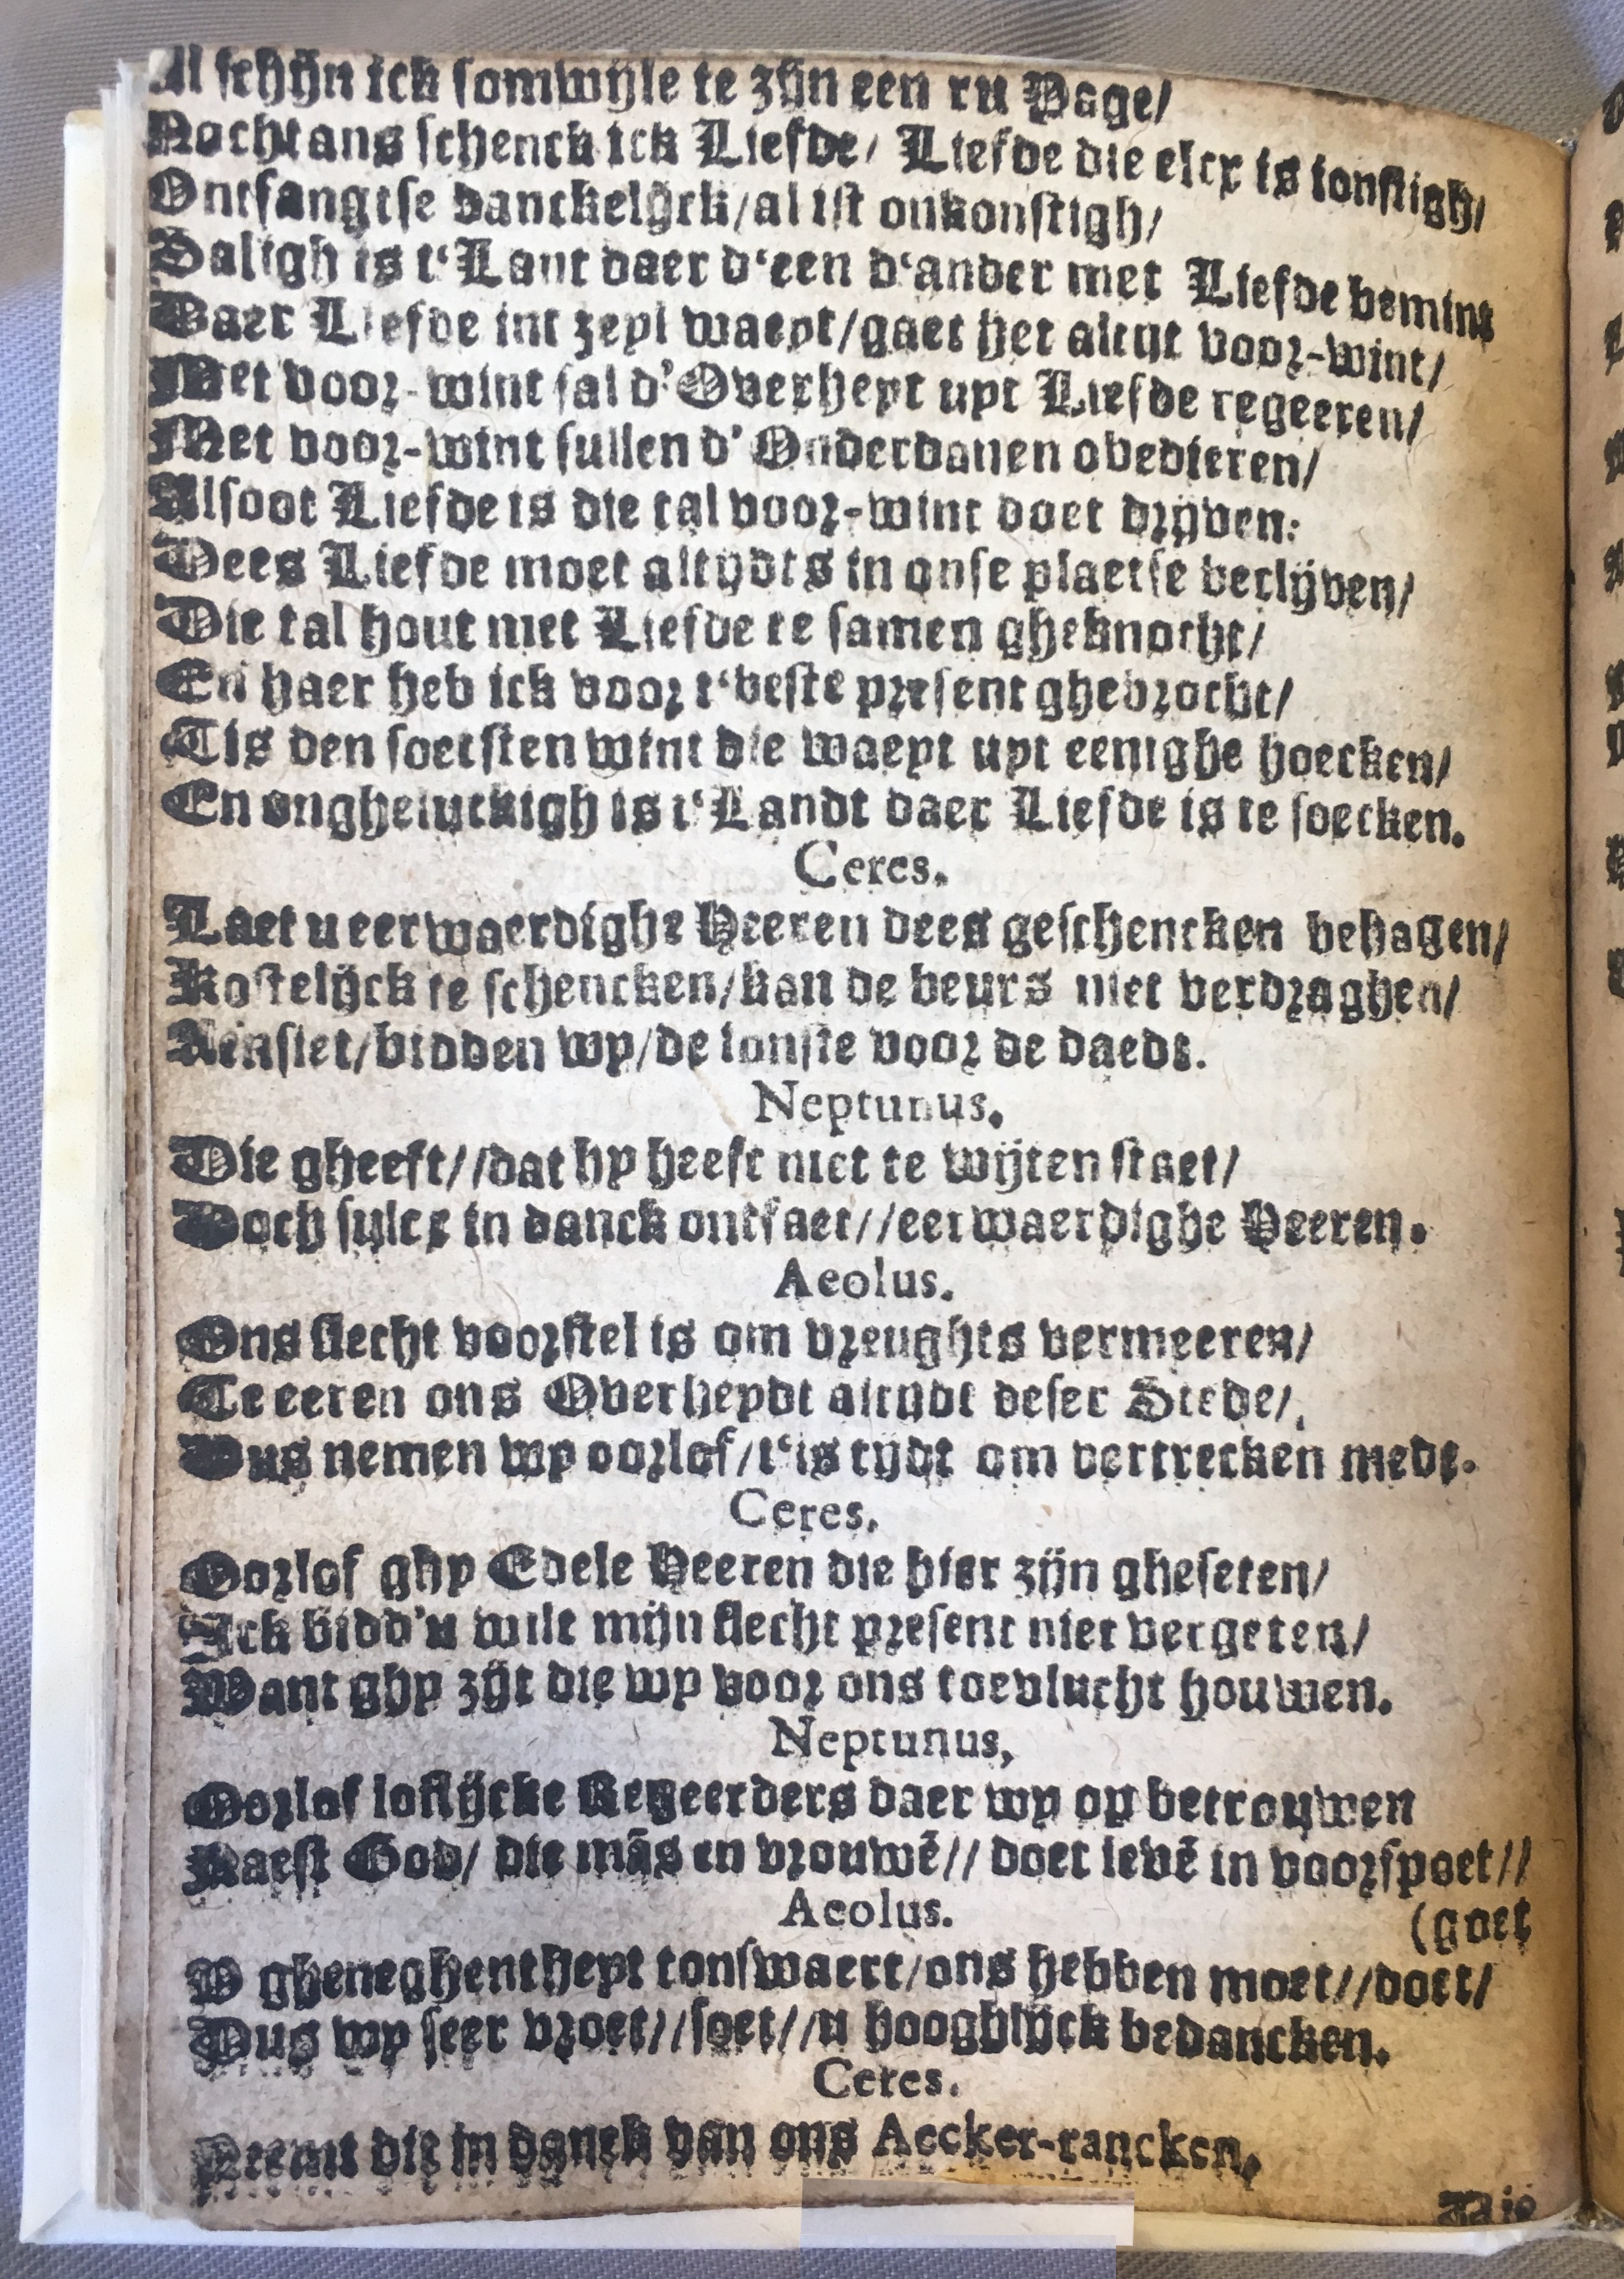 Al schijn ick somwijle te zijn een ru Page/
Nochtans schenck ick Liefde/ Liefde die elcx is ionstigh/
Ontfangtse danckelijck/al ist onkonstigh/
Saligh is t‘Lant daer d‘een d‘ander met Liefde bemint
Daer Liefde int zeyl waeyt/gaet het altijt voor-wint/
Met voor-wint sal d’Overheyt uyt Liefde regeeren/
Met voor-wint sullen d’Onderdanen obedieren/
Alsoot Liefde is die tal voor-wint doet drijven:
Dees Liefde moet altijdts in onse plaetse beclijven/
Die tal hout met Liefde te samen gheknocht/
En haer heb ick voor t‘beste present ghebrocht/
Tis den soetsten wint die waeyt uyt eenighe hoecken/
En ongheluckigh is t‘Landt daer Liefde is te soecken.
Ceres.
Laet u eerwaerdighe Heeren dees geschencken behagen/
Kostelijck te schencken/kan de beurs niet verdraghen/
Aensiet/bidden wy/de ionste voor de daedt.
Neptunus.
Die gheeft//dat hy heeft niet te wijten staet/
Doch sulcx in danck ontfaet//eerwaerdighe Heeren.
Aeolus.
Ons slecht voorstel is om vreughts vermeeren/
Te eeren ons Overheydt altijdt deser Stede/
Dus nemen wy oorlof/t‘is tijdt om vertrecken mede.
Ceres.
Oorlof ghy Edele Heeren die hier zijn gheseten/
Ick bidd’u wilt mijn slecht present niet vergeten/
Want ghy zijt die wy voor ons toevlucht houwen.
Neptunus,
Oorlof loflijcke Regeerders daer wy op betrouwen
Naest God/ die mãs en vrouwẽ// doet levẽ in voorspoet//
Aeolus. (goet
V gheneghentheyt tonswaert/ons hebben moet//doet/
Dus wy seer vroet//soet//u hooghlijck bedancken.
Ceres.
Neemt die in danck van ons Aecker-rancken,
Die